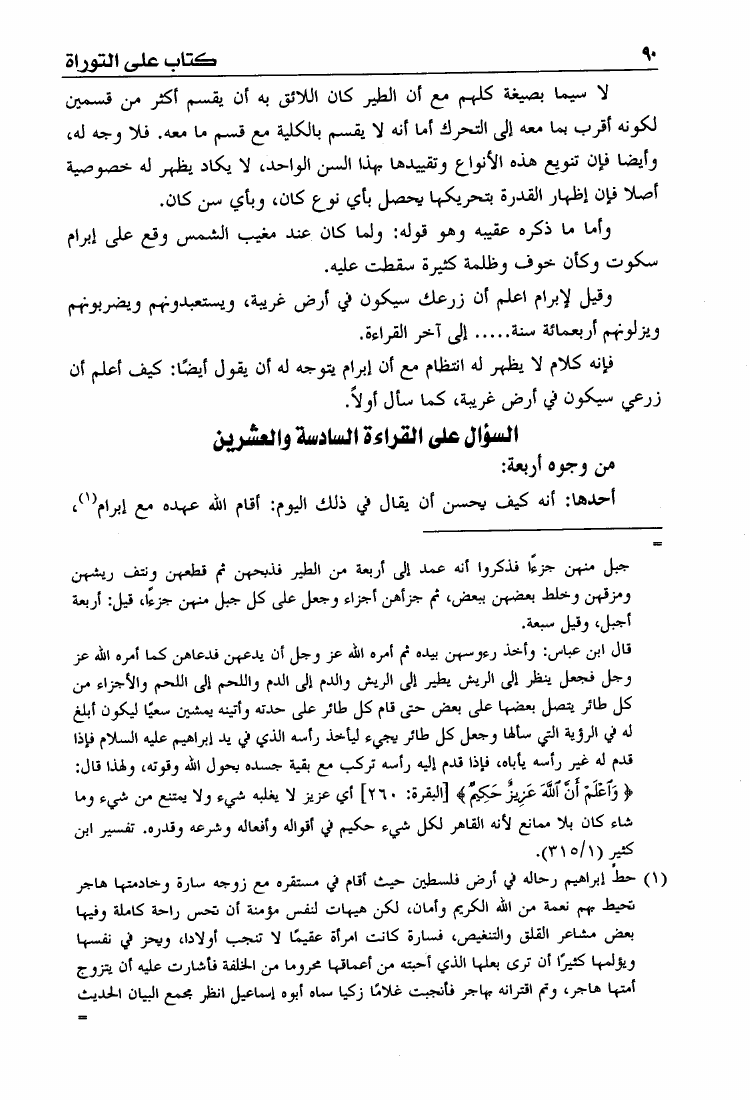 ٩٠
كتاب على التوراة
لا سيما بصيغة كلهم مع أن الطير كان اللائق به أن يقسم أكثر من قسمين
لكونه أقرب بما معه إلى التحرك أما أنه لا يقسم بالكلية مع قسم ما معه. فلا وجه له،
وأيضا فإن تنويع هذه الأنواع وتقييدها بهذا السن الواحد، لا يكاد يظهر له خصوصية
أصلا فإن إظهار القدرة بتحريكها يحصل بأي نوع كان، وبأي سن كان.
وأما ما ذكره عقيبه وهو قوله: ولما كان عند مغيب الشمس وقع على إبرام
سكوت وكأن خوف وظلمة كثيرة سقطت عليه.
وقيل لإبرام اعلم أن زرعك سيكون في أرض غريبة، ويستعبدونهم ويضربونهم
ويزلونهم أربعمائة سنة..... إلى آخر القراءة.
فإنه كلام لا يظهر له انتظام مع أن إبرام يتوجه له أن يقول أيضًا: كيف أعلم أن
زرعي سيكون في أرض غريبة، كما سأل أولاً.
السؤال على القراءة السادسة والعشرين
من وجوه أربعة:
أحدها: أنه كيف يحسن أن يقال في ذلك اليوم: أقام الله عهده مع إبرام(١)،
=
جبل منهن جزءًا فذكروا أنه عمد إلى أربعة من الطير فذبحهن ثم قطعهن ونتف ريشهن
ومزقهن وخلط بعضهن ببعض، ثم جزأهن أجزاء وجعل على كل جبل منهن جزءًا، قيل: أربعة
أجبل، وقيل سبعة.
قال ابن عباس: وأخذ رءوسهن بيده ثم أمره الله عز وجل أن يدعهن فدعاهن كما أمره الله عز
وجل فجعل ينظر إلى الريش يطير إلى الريش والدم إلى الدم واللحم إلى اللحم والأجزاء من
كل طائر يتصل بعضها على بعض حتى قام كل طائر على حدته وأتينه يمشين سعيًا ليكون أبلغ
له في الرؤية التي سألها وجعل كل طائر يجيء ليأخذ رأسه الذي في يد إبراهيم عليه السلام فإذا
قدم له غير رأسه يأباه، فإذا قدم إليه رأسه تركب مع بقية جسده بحول الله وقوته، ولهذا قال:
﴿ وَٱعْلَمْ أَنَّ ٱللَّهَ عَزِيزٌ حَكِيمٌ ﴾ [البقرة: ٢٦٠] أي عزيز لا يغلبه شيء ولا يمتنع من شيء وما
شاء كان بلا ممانع لأنه القاهر لكل شيء حكيم في أقواله وأفعاله وشرعه وقدره. تفسير ابن
كثير (٣١٥/١).
(١) حط إبراهيم رحاله في أرض فلسطين حيث أقام في مستقره مع زوجه سارة وخادمتها هاجر
تحيط بهم نعمة من الله الكريم وأمان، لكن هيهات لنفس مؤمنة أن تحس راحة كاملة وفيها
بعض مشاعر القلق والتنغيص، فسارة كانت امرأة عقيمًا لا تنجب أولادا، ويحز في نفسها
ويؤلمها كثيرًا أن ترى بعلها الذي أحبته من أعماقها محروما من الخلفة فأشارت عليه أن يتزوج
أمتها هاجر، وتم اقترانه بهاجر فأنجبت غلامًا زكيا سماه أبوه إسماعيل انظر مجمع البيان الحديث
=